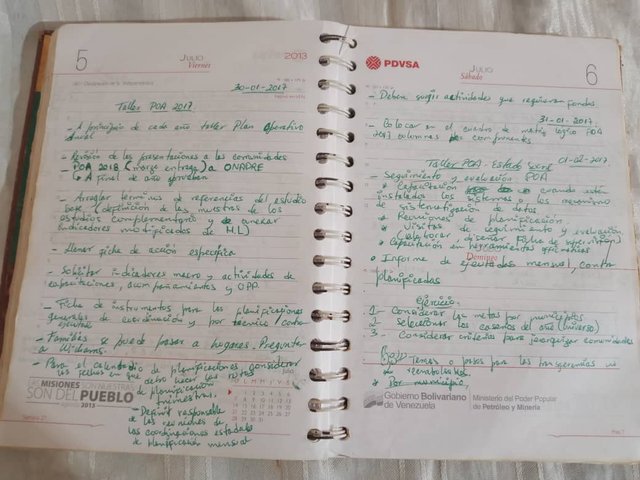 5
JULIO
Viernes
2013
30-01-2017
Taller POA 2017
- A principio de cada año taller Plan Operativo
Anual
- Revisión de las presentaciones a las comunidades
- POA 2018 (marzo entrega) a ONAPRE
* A final de año aprueban
- Arreglar términos de referencias del estudio
base (definición de las muestras de los
estudios complementario y anexar
indicadores modificados de ML)
- Llenar ficha de acción específica
- Solicitar Indicadores macro y actividades de
capacitaciones, acompañamientos y OPP.
- Ficha de instrumentos para las planificaciones
generales de coordinación y por técnico
- Familias se puede pasar a hogares. Preguntar
a Williams.
- Para el calendario de planificaciones considerar
las fechas en que debo hacer las
de planificación
trimestral.
- Definir responsable
de las reuniones de
las coordinaciones estadales
de planificación mensual
LAS MISIONES SON NUESTRAS
SON DEL PUEBLO
2013
PDVSA
JULIO
Sábado
6
- Deben surgir actividades que requieran fondos
31-01-2017
- Colocar en el cuadro de matriz lógico POA
2017 columnas componentes.
Taller POA - Estado Sucre 01-02-2017
- Seguimiento y evaluación POA
* Capacitación cuando estén
instalados los sistemas o los
de sistematización de datos
* Reuniones de planificación.
* Visitas de seguimiento y evaluación
(elaborar, diseñar Ficha de supervisión)
* Capacitación en herramientas ofimáticas
Domingo
* Informe de ejecutados mensual, contra
planificadas
Ejercicio
1- Considerar las metas por municipios
2- Seleccionar los caseríos del año (universo)
3- Considerar criterios para jerarquizar comunidades
* Por municipio,
Gobierno Bolivariano
de Venezuela
Ministerio del Poder Popular
de Petróleo y Minería